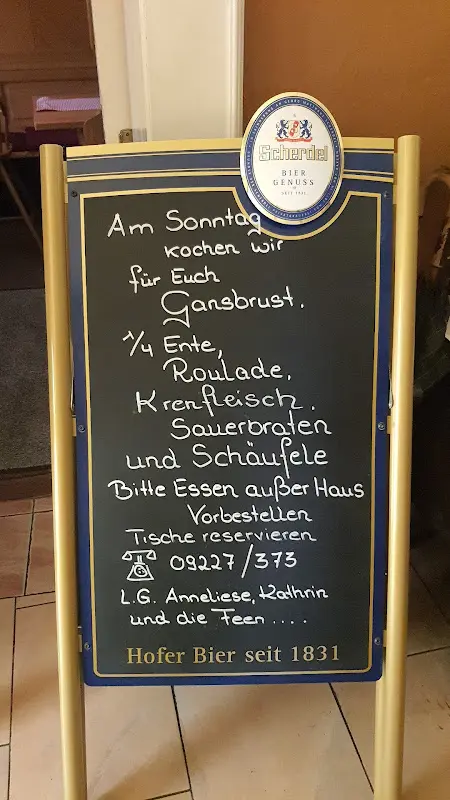 Scherdel
BIER
GENUSS
SEIT 1831
Am Sonntag
kochen wir
für Euch
Gansbrust.
1/4 Ente,
Roulade,
Krenfleisch.
Sauerbraten
und Schäufele
Bitte Essen außer Haus
Vorbestellen
Tische reservieren
09227/373
L.G. Anneliese, Kathrin
und die Feen ....
Hofer Bier seit 1831